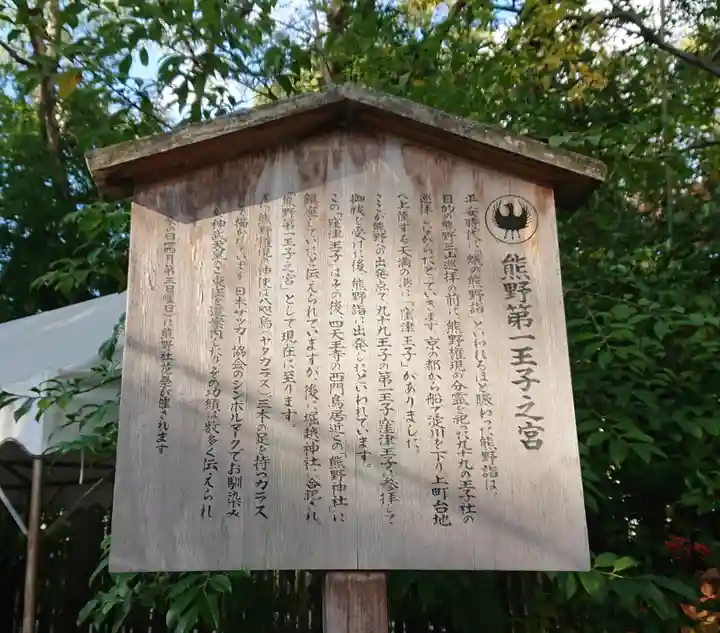 熊野第一王子之宮
平安時代、「蟻の熊野詣」といわれるほど賑わった熊野詣は、
目的の熊野三山巡拝の前に、熊野権現の分霊を祀った九十九の王子社の
巡拝しながらだとされています。京の都から船で淀川を下り上町台地
へ上陸する天満の港に「窪津王子」がありました。
ここが熊野への出発点で九十九王子の第一王子窪津王子を参拝して
御祓を受けた後、熊野詣に出発したといわれています。
この「窪津王子」はその後、四天王寺の西門鳥居近くの「熊野神社」に
鎮座していたと伝えられていますが、後に堀越神社に合祀され
「熊野第一王子之宮」として現在に至ります。
熊野権現の神使は八咫烏(ヤタガラス)三本の足を持つカラス
描かれています。日本サッカー協会のシンボルマークでお馴染み
神武天皇の東征を道案内したり、その功績は数多く伝えられ
の日(四月第三日曜日)に熊野社花祭が催されます。